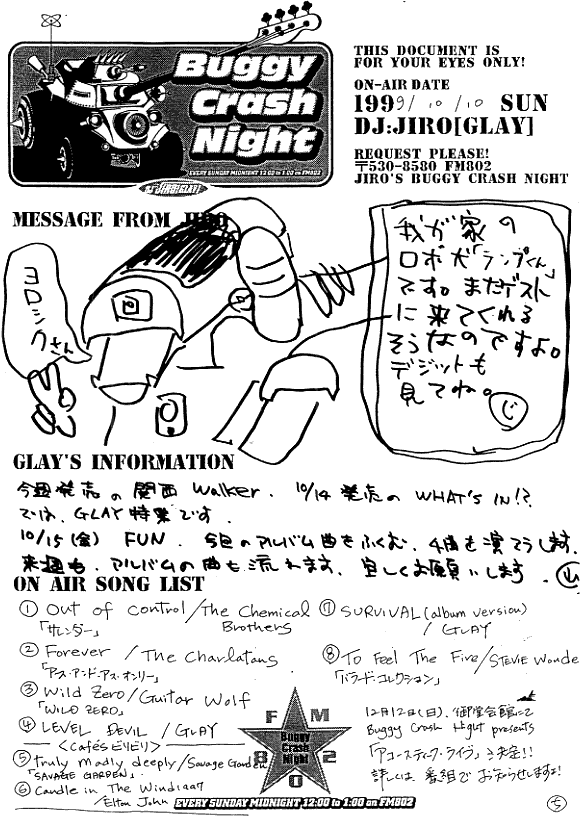 Buggy
Crash
Night
EVERY SUNDAY MIDNIGHT 12:00 to 1:00 on FM802
DJ: JIRO[GLAY]
THIS DOCUMENT IS
FOR YOUR EYES ONLY!
ON-AIR DATE
1999/10/10 SUN
DJ:JIRO[GLAY]
REQUEST PLEASE!
〒530-8580 FM802
JIRO'S BUGGY CRASH NIGHT
MESSAGE FROM JIRO
ヨロシクさん
我が家の
ロボ犬「ランプくん」
です。またゲスト
に来てくれる
そうなのですよ。
デジットも
見てね。
じ
GLAY'S INFORMATION
今週発売の関西 Walker. 10/14 発売の WHAT'S IN!?
では、GLAY特集です.
10/15(金) FUN. 今回のアルバム曲をふくむ、4曲を演てうします.
来週も、アルバムの曲も流れます. 宜しくお願いします. 山
ON AIR SONG LIST
① Out of control/The Chemical Brothers
「サレンダー」
② Forever /The Charlatans
「アス・アンド・アス・オンリー」
③ Wild Zero/Guitar Wolf
「WILD ZERO」
④ LEVEL DEVIL /GLAY
<Caféビリビリ>
⑤ truly madly deeply/Savage Garden
「SAVAGE GARDEN」.
⑥ Candle in The Wind 1997
/Elton John
⑦ SURVIVAL (album version)
/ GLAY
⑧ To Feel The Fire/STEVIE Wonde
「バラード・コレクション」
FM
802
Buggy
Crash
Night
EVERY SUNDAY MIDNIGHT 12:00 to 1:00 on FM802
12月12日(日)、御堂会館にて
Buggy Crash Night presents
「アコースティック・ライヴ」き決定!!
詳しくは 番組で お知らせしますよ!
ち